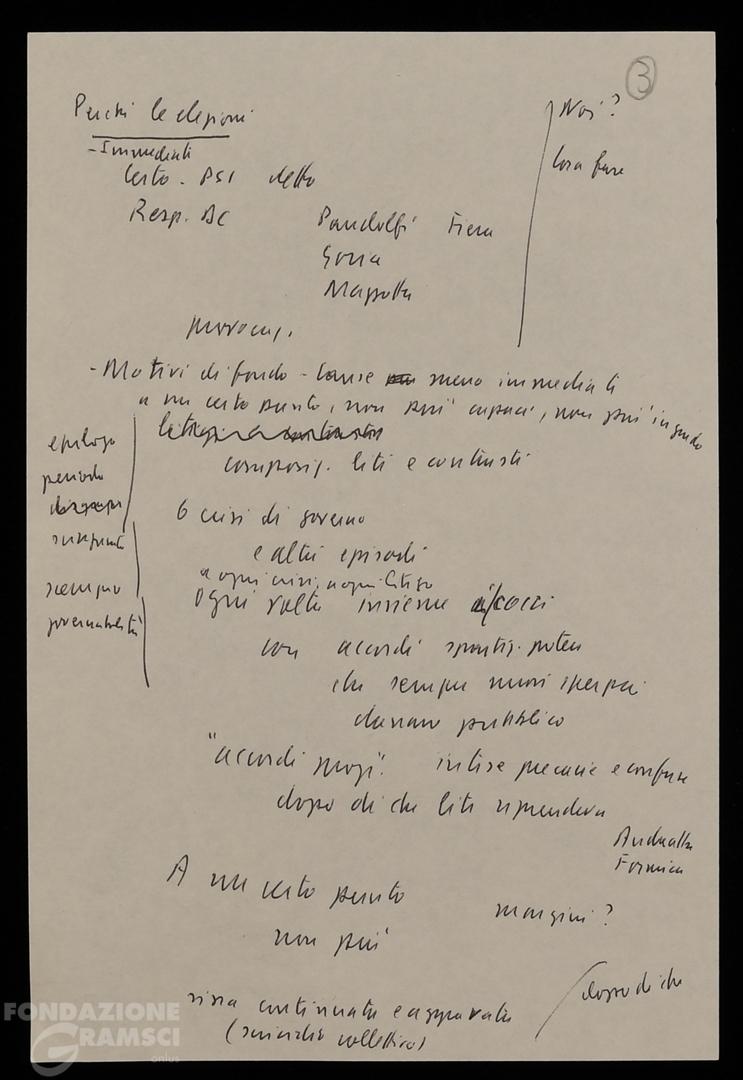 3
Perché le elezioni
Noi?
Cosa fare
- Immediati
Certo - PSI detto
Resp. DC Pandolfi Fiera
Goria
Mazzotta
- Motivi di fondo - Cause meno immediati
a un certo punto, non più capaci, non più in grado
composiz. liti e contrasti
epilogo
periodo
sempre
governabilità
6 crisi di governo
e altri episodi
a ogni crisi, a ogni litigio
Ogni volta insieme i cocci
con accordi spartiz. potere
che sempre nuovi sperperi
danaro pubblico
"accordi intese precarie e confuse
dopo di che liti riprendeva
Andreatta
Formica
A un certo punto
margini?
non più
dopo di che
rissa continuata e aggravata
(suicidio collettivo)
FONDAZIONE
GRAMSCI
onlus